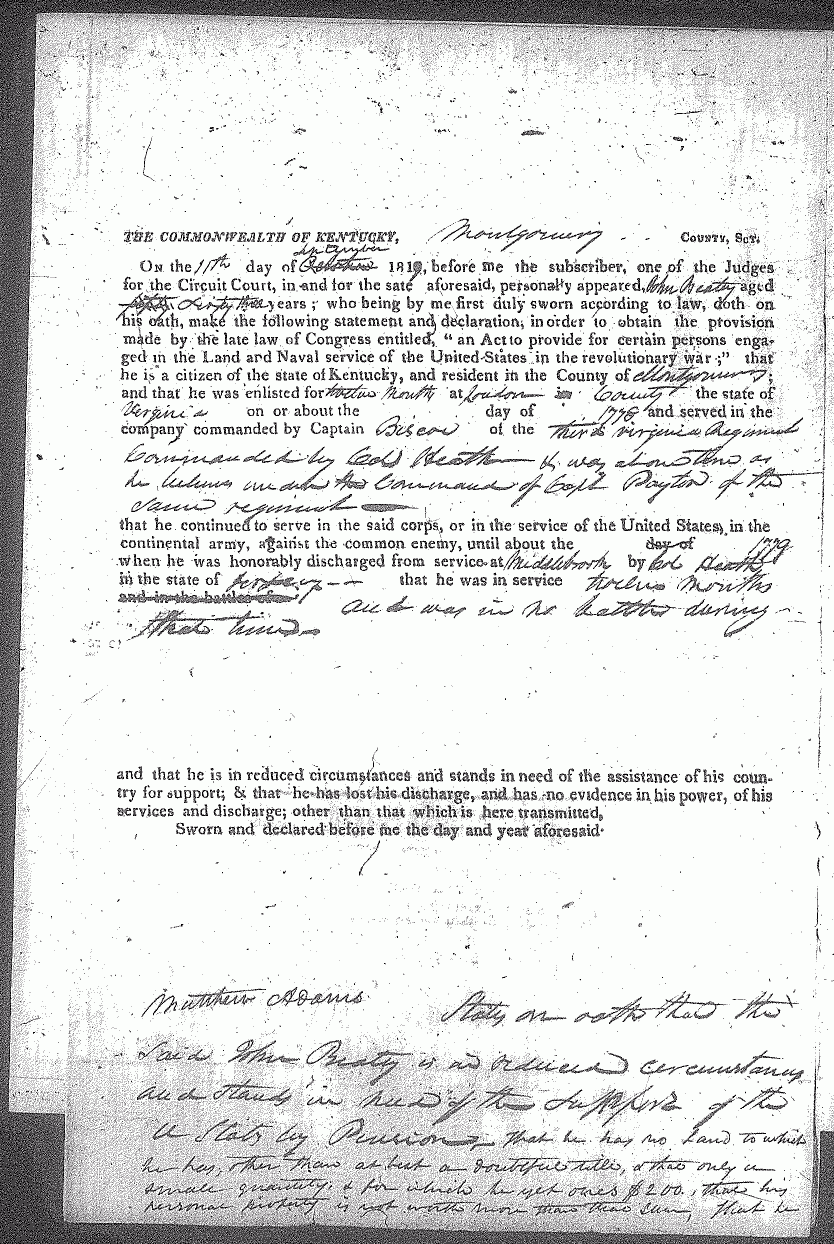 THE COMMONWEALTH OF KENTUCKY, Montgomery County, Sct.
September
On the 11th day of 1819, before me the subscriber, one of the Judges
for the Circuit Court, in and for the sate aforesaid, personally appeared, John Beaty aged
Sixty three years; who being by me first duly sworn according to law, doth on
his oath, make the following statement and declaration, in order to obtain the provision
made by the late law of Congress entitled, "an Act to provide for certain persons enga-
ged in the Land and Naval service of the United States in the revolutionary war;" that
he is a citizen of the state of Kentucky, and resident in the County of Montgomery;
and that he was enlisted for twelve Month at Loudon in County the state of
Virginia on or about the day of 1778 and served in the
company commanded by Captain Biscoe of the third virginia Regiment
Commanded by Col Heath & was about time as
he believes under the Command of Capt Payton of the
same regiment
that he continued to serve in the said corps, or in the service of the United States, in the
continental army, against the common enemy, until about the day of 1779
when he was honorably discharged from service at Middlebrook by Col Heath
in the state of Jersey -- that he was in service twelve months
and in the battles of and was in no battles during
that time
and that he is in reduced circumstances and stands in need of the assistance of his coun-
try for support; & that he has lost his discharge, and has no evidence in his power, of his
services and discharge; other than that which is here transmitted,
Sworn and declared before me the day and year aforesaid.
Matthew Adams States on oath that the
said John Beaty is in reduced circumstances
and stands in need of the support of the
U States by Pension, that he has no Land to which
he has, other than at best a doubtful title, & that only a
small quantity, & for which he yet owes $200, that his
personal property is not worth more than that sum, that he